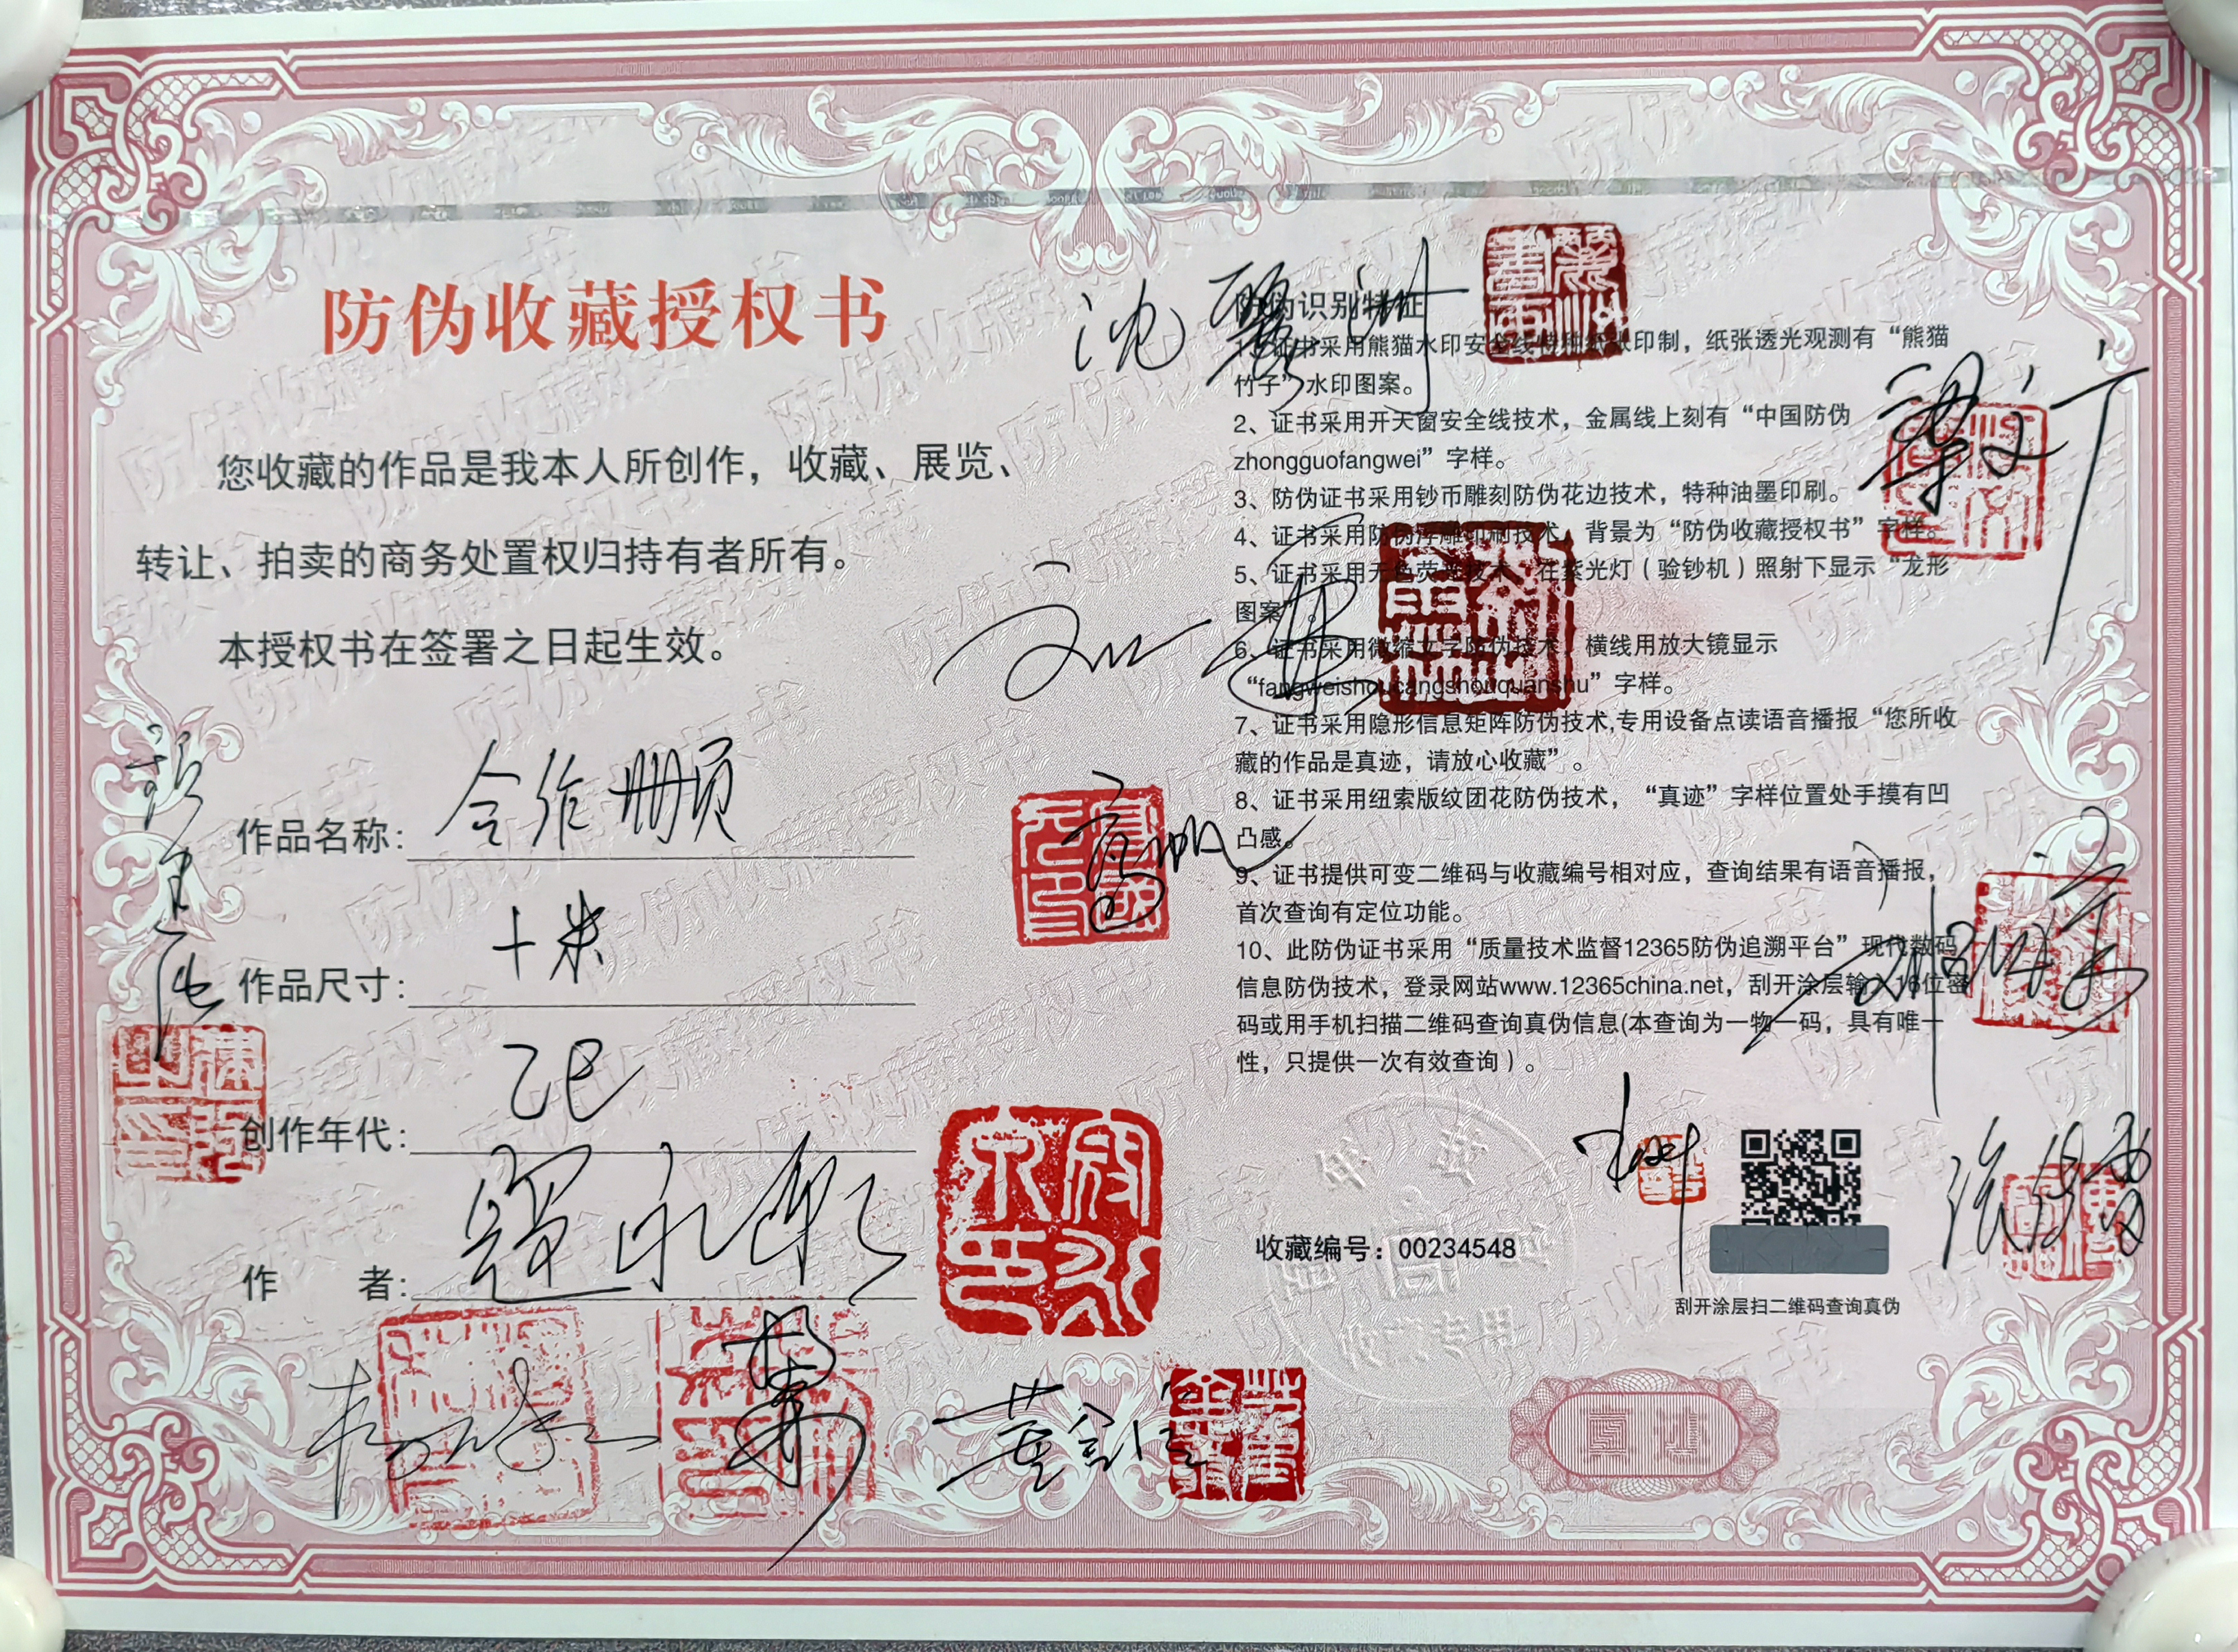 防伪收藏授权书
您收藏的作品是我本人所创作，收藏、展览、
转让、拍卖的商务处置权归持有者所有。
本授权书在签署之日起生效。
作品名称：合作册页
作品尺寸：十米
创作年代：乙巳
作 者：
防伪识别特征
1、证书采用熊猫水印安全线特种纸张印制，纸张透光观测有“熊猫
竹子”水印图案。
2、证书采用开天窗安全线技术，金属线上刻有“中国防伪
zhongguofangwei”字样。
3、防伪证书采用钞币雕刻防伪花边技术，特种油墨印刷。
4、证书采用防伪浮雕印刷技术，背景为“防伪收藏授权书”字样。
5、证书采用无色荧光技术，在紫光灯（验钞机）照射下显示“龙形
图案”。
6、证书采用微缩文字防伪技术，横线用放大镜显示
“fangweishoucangshouquanshu”字样。
7、证书采用隐形信息矩阵防伪技术,专用设备点读语音播报“您所收
藏的作品是真迹，请放心收藏”。
8、证书采用纽索版纹团花防伪技术，“真迹”字样位置处手摸有凹
凸感。
9、证书提供可变二维码与收藏编号相对应，查询结果有语音播报，
首次查询有定位功能。
10、此防伪证书采用“质量技术监督12365防伪追溯平台”现代数码
信息防伪技术，登录网站www.12365china.net，刮开涂层输入16位密
码或用手机扫描二维码查询真伪信息(本查询为一物一码，具有唯一
性，只提供一次有效查询）。
收藏编号：00234548
刮开涂层扫二维码查询真伪
真迹
黄剑